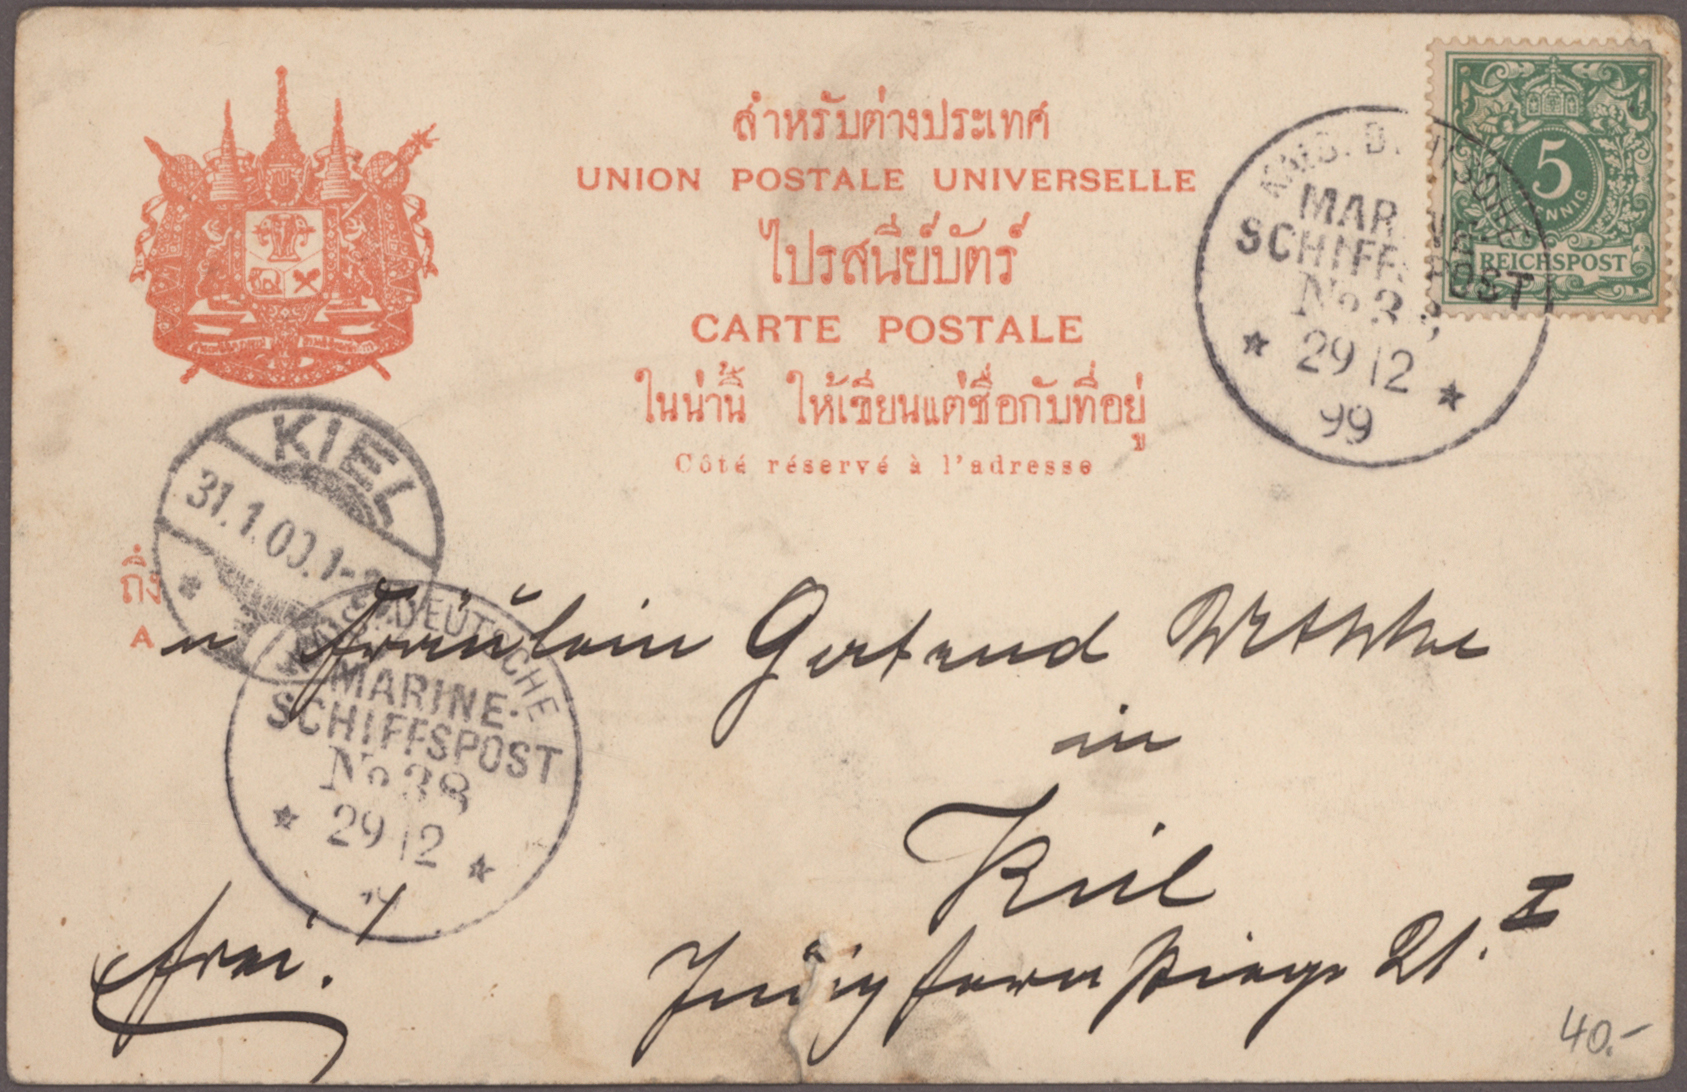 สำหรับต่างประเทศ
UNION POSTALE UNIVERSELLE
ไปรสนีย์บัตร์
CARTE POSTALE
ในน่านี้ ให้เขียนแต่ชื่อกับที่อยู่
Côté réservé à l'adresse
5
PFENNIG
REICHSPOST
KAIS. DEUTSCHE
MARINE-
SCHIFFSPOST
No 38
29 12
99
KIEL
31.1.00.1-
ถึง
A
KAIS. DEUTSCHE
MARINE-
SCHIFFSPOST
No 38
29 12
n Fräulein Gertrud
in
Kiel
Jungfernstiege 21. I
frei!
40.-